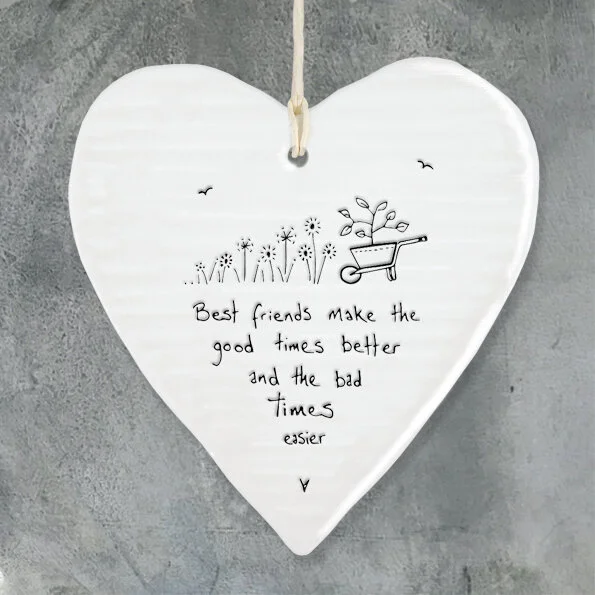 Best friends make the
good times better
and the bad
times
easier